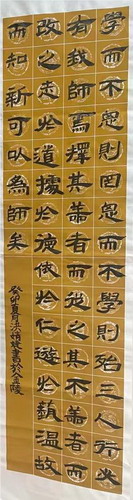 學而不思則罔思而不學則殆三人行必
有我師焉擇其善者而從之其不善者而
改之志於道據於德依於仁遊於藝溫故
而知新可以為師矣
癸卯夏月書於金陵